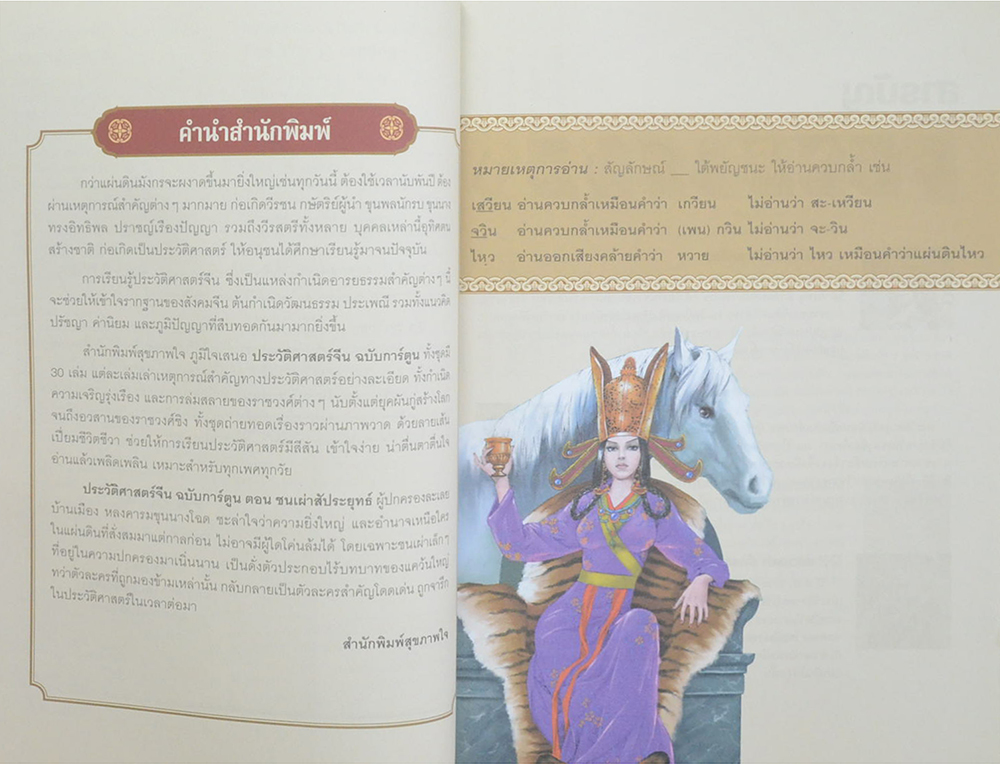 คำนำสำนักพิมพ์
กว่าแผ่นดินมังกรจะผงาดขึ้นมายิ่งใหญ่เช่นทุกวันนี้ ต้องใช้เวลานับพันปี ต้อง
ผ่านเหตุการณ์สำคัญต่าง ๆ มากมาย ก่อเกิดวีรชน กษัตริย์ผู้นำ ขุนพลนักรบ ขุนนาง
ทรงอิทธิพล ปราชญ์เรืองปัญญา รวมถึงวีรสตรีทั้งหลาย บุคคลเหล่านี้อุทิศตน
สร้างชาติ ก่อเกิดเป็นประวัติศาสตร์ ให้อนุชนได้ศึกษาเรียนรู้มาจนปัจจุบัน
การเรียนรู้ประวัติศาสตร์จีน ซึ่งเป็นแหล่งกำเนิดอารยธรรมสำคัญต่าง ๆ นี้
จะช่วยให้เข้าใจรากฐานของสังคมจีน ต้นกำเนิดวัฒนธรรม ประเพณี รวมทั้งแนวคิด
ปรัชญา ค่านิยม และภูมิปัญญาที่สืบทอดกันมามากยิ่งขึ้น
สำนักพิมพ์สุขภาพใจ ภูมิใจเสนอ ประวัติศาสตร์จีน ฉบับการ์ตูน ทั้งชุดมี
30 เล่ม แต่ละเล่มเล่าเหตุการณ์สำคัญทางประวัติศาสตร์อย่างละเอียด ทั้งกำเนิด
ความเจริญรุ่งเรือง และการล่มสลายของราชวงศ์ต่าง ๆ นับตั้งแต่ยุคผันกู่สร้างโลก
จนถึงอวสานของราชวงศ์ชิง ทั้งชุดถ่ายทอดเรื่องราวผ่านภาพวาด ด้วยลายเส้น
เปี่ยมชีวิตชีวา ช่วยให้การเรียนประวัติศาสตร์มีสีสัน เข้าใจง่าย น่าตื่นตาตื่นใจ
อ่านแล้วเพลิดเพลิน เหมาะสำหรับทุกเพศทุกวัย
ประวัติศาสตร์จีน ฉบับการ์ตูน ตอน ชนเผ่าสัประยุทธ์ ผู้ปกครองละเลย
บ้านเมือง หลงคารมขุนนางโฉด ชะล่าใจว่าความยิ่งใหญ่ และอำนาจเหนือใคร
ในแผ่นดินที่สั่งสมมาแต่กาลก่อน ไม่อาจมีผู้ใดโค่นล้มได้ โดยเฉพาะชนเผ่าเล็ก ๆ
ที่อยู่ในความปกครองมาเนิ่นนาน เป็นดังตัวประกอบไร้บทบาทของแคว้นใหญ่
ทว่าตัวละครที่ถูกมองข้ามเหล่านั้น กลับกลายเป็นตัวละครสำคัญโดดเด่น ถูกจารึก
ในประวัติศาสตร์ในเวลาต่อมา
สำนักพิมพ์สุขภาพใจ
หมายเหตุการอ่าน : สัญลักษณ์ __ ใต้พยัญชนะ ให้อ่านควบกล้ำ เช่น
เสวียน อ่านควบกล้ำเหมือนคำว่า เกวียน ไม่อ่านว่า สะ-เหวียน
จวิน อ่านควบกล้ำเหมือนคำว่า (เพน) กวิน ไม่อ่านว่า จะ-วิน
ไหฺว อ่านออกเสียงคล้ายคำว่า หวาย ไม่อ่านว่า ไหว เหมือนคำว่าแผ่นดินไหว